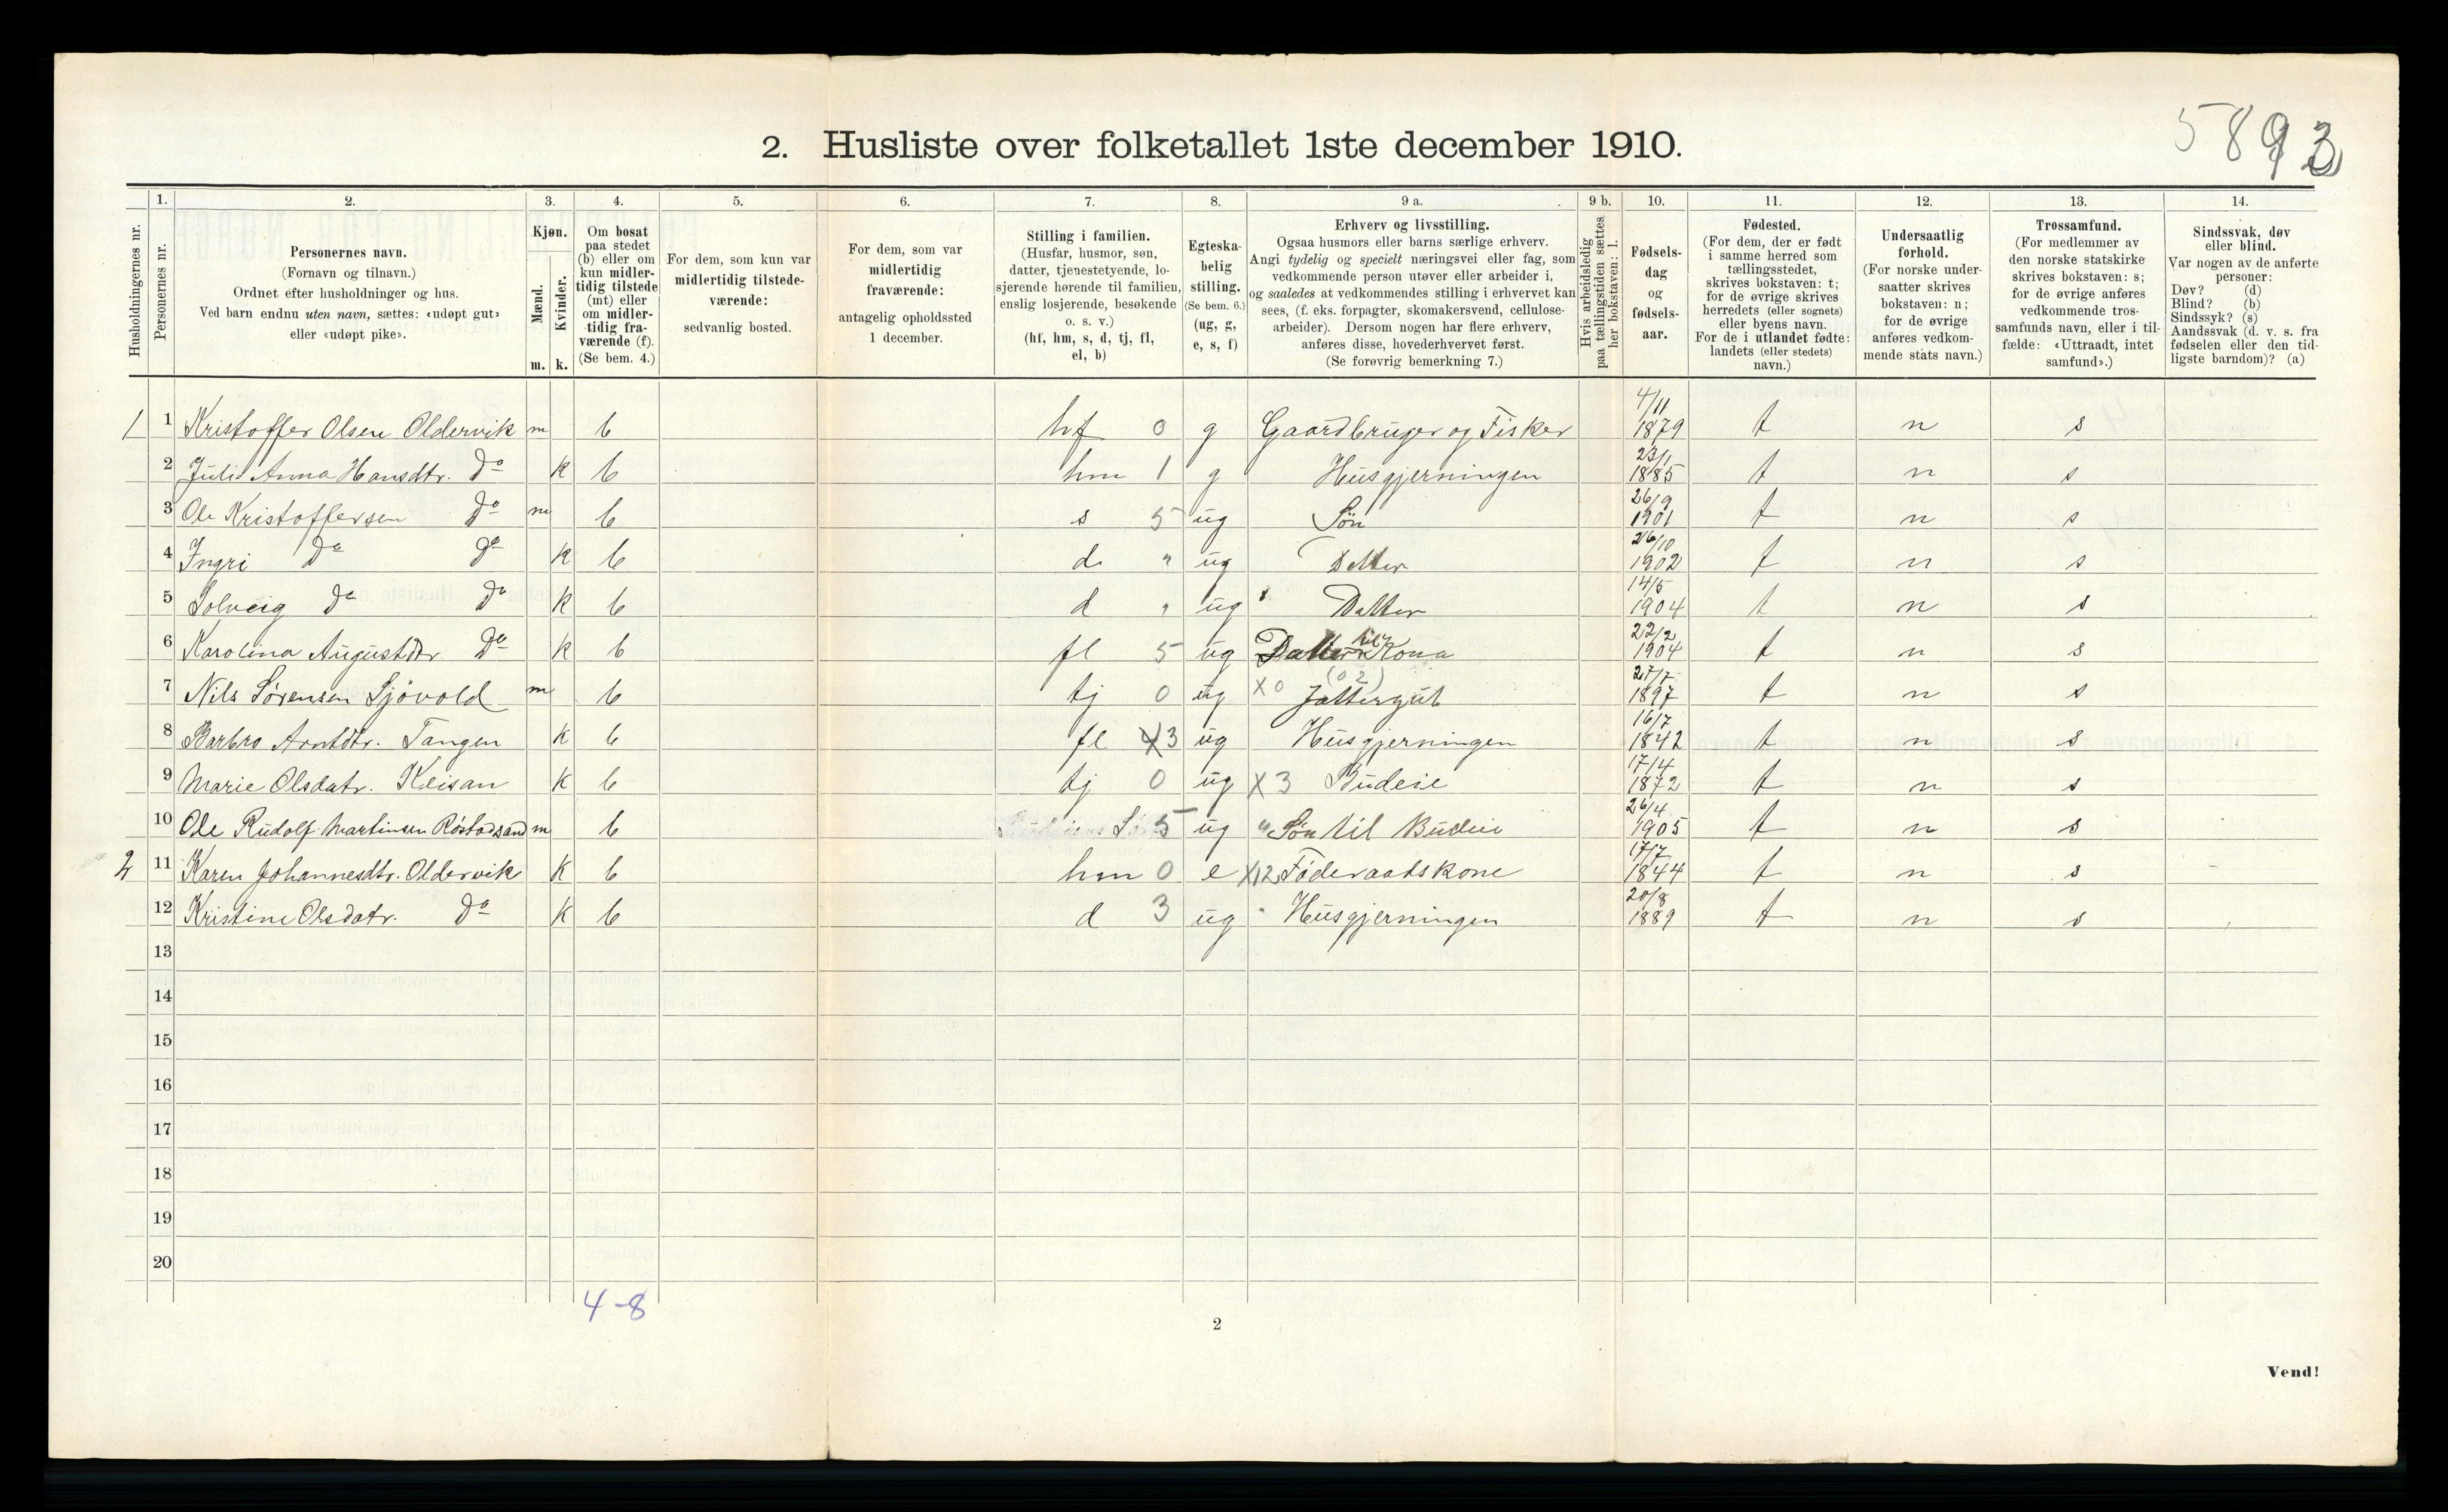 5893
2. Husliste over folketallet 1ste december 1910.
Husholdningernes nr.
1. Personernes nr.
2. Personernes navn. (Fornavn og tilnavn.) Ordnet efter husholdninger og hus. Ved barn endnu uten navn, sættes: «udøpt gut» eller «udøpt pike».
3. Kjøn. Mænd. m. Kvinder. k.
4. Om bosat paa stedet (b) eller om kun midlertidig tilstede (mt) eller om midlertidig fraværende (f). (Se bem. 4.)
5. For dem, som kun var midlertidig tilstedeværende: sedvanlig bosted.
6. For dem, som var midlertidig fraværende: antagelig opholdssted 1 december.
7. Stilling i familien. (Husfar, husmor, søn, datter, tjenestetyende, losjerende hørende til familien, enslig losjerende, besøkende o. s. v.) (hf, hm, s, d, tj, fl, el, b)
8. Egteskabelig stilling. (Se bem. 6.) (ug, g, e, s, f)
9 a. Erhverv og livsstilling. Ogsaa husmors eller barns særlige erhverv. Angi tydelig og specielt næringsvei eller fag, som vedkommende person utøver eller arbeider i, og saaledes at vedkommendes stilling i erhvervet kan sees, (f. eks. forpagter, skomakersvend, cellulosearbeider). Dersom nogen har flere erhverv, anføres disse, hovederhvervet først. (Se forøvrig bemerkning 7.)
9 b. Hvis arbeidsledig paa tællingstiden sættes her bokstaven: l.
10. Fødselsdag og fødselsaar.
11. Fødested. (For dem, der er født i samme herred som tællingsstedet, skrives bokstaven: t; for de øvrige skrives herredets (eller sognets) eller byens navn. For de i utlandet fødte: landets (eller stedets) navn.)
12. Undersaatlig forhold. (For norske undersaatter skrives bokstaven: n; for de øvrige anføres vedkommende stats navn.)
13. Trossamfund. (For medlemmer av den norske statskirke skrives bokstaven: s; for de øvrige anføres vedkommende trossamfunds navn, eller i tilfælde: «Uttraadt, intet samfund».)
14. Sindssvak, døv eller blind. Var nogen av de anførte personer: Døv? (d) Blind? (b) Sindssyk? (s) Aandssvak (d. v. s. fra fødselen eller den tidligste barndom)? (a)
1 1 Kristoffer Olsen Oldervik m b hf 0 g Gaardbruger og Fisker 4/11 1879 t n s
2 Juli Anna Hansdtr. Do k b hm 1 g Husgjerningen 23/1 1885 t n s
3 Ole Kristoffersen Do m b s 5 ug Søn 26/9 1901 t n s
4 Ingri Do Do k b d " ug Datter 26/10 1902 t n s
5 Solveig Do Do k b d " ug Datter 14/5 1904 t n s
6 Karolina Augustdtr Do k b fl 5 ug Datter til Kona 22/2 1904 t n s
7 Nils Sørensen Sjövold m b tj 0 ug X0 (02) Jættergut 27/7 1897 t n s
8 Barbro Arntdtr. Tangen k b fl 3 ug Husgjerningen 16/7 1842 t n s
9 Marie Olsdatr. Kleisan k b tj 0 ug X3 Budeie 17/4 1872 t n s
10 Ole Rudolf Martinsen Röstadsand m b 5 ug " Søn til Budeie 26/4 1905 t n s
2 11 Karen Johannesdtr. Oldervik k b hm 0 e X12 Föderaadskone 17/7 1844 t n s
12 Kristine Olsdatr. Do k b d 3 ug " Husgjerningen 20/8 1889 t n s
13
14
15
16
17
18
19
20
4-8
2
Vend!